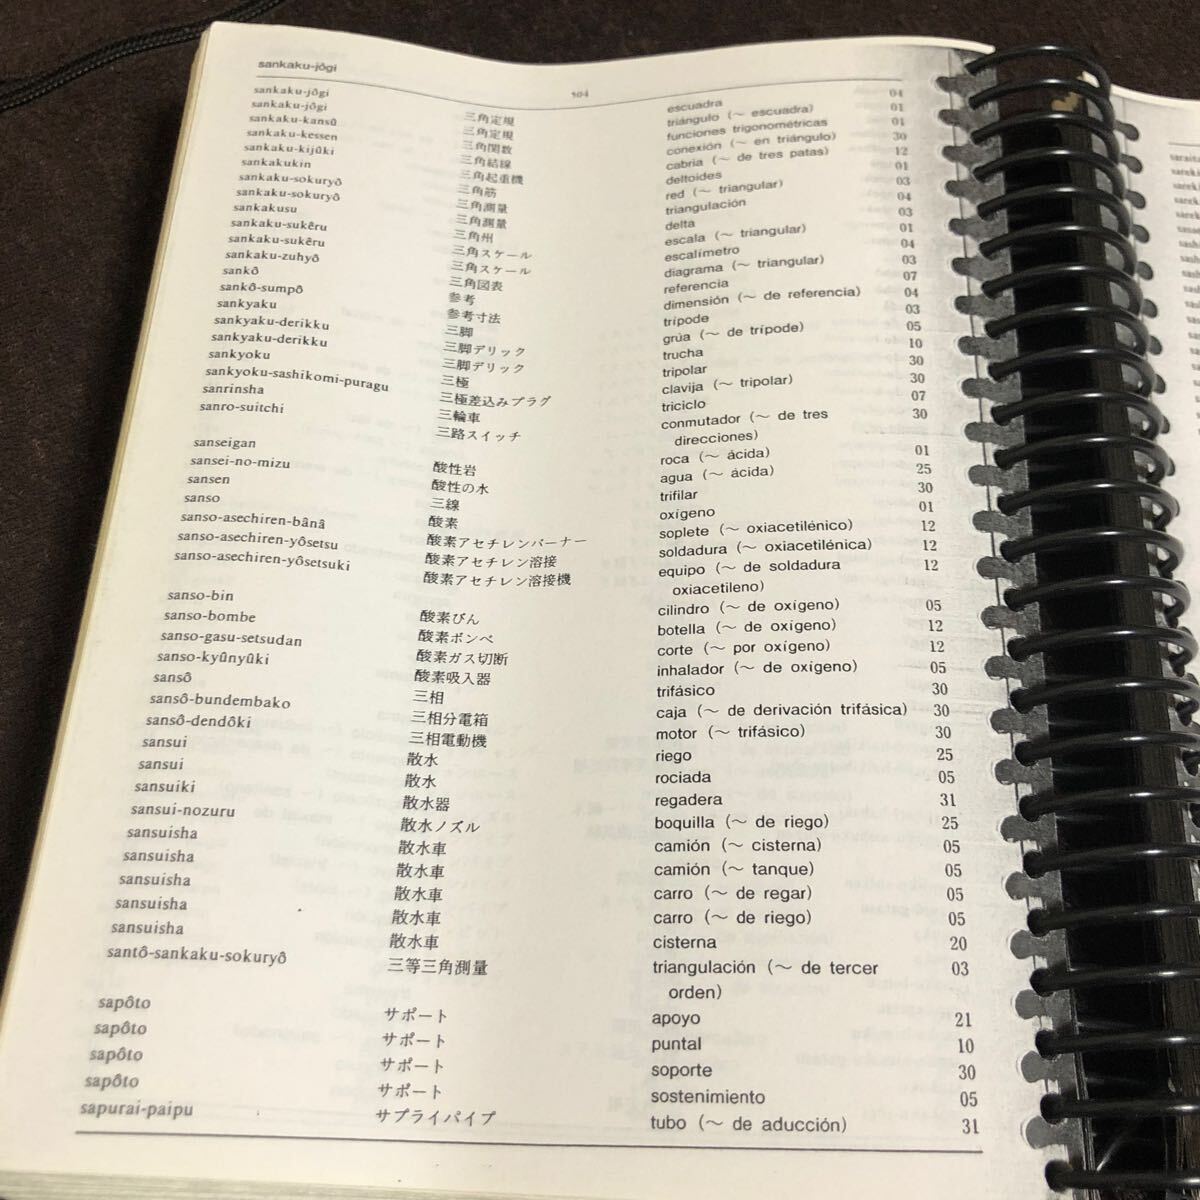 sankaku-jôgi
104
sankaku-jôgi 三角定規 escuadra 04
sankaku-jôgi 三角定規 triángulo (～ escuadra) 01
sankaku-kansû 三角関数 funciones trigonométricas 01
sankaku-kessen 三角結線 conexión (～ en triángulo) 30
sankaku-kijûki 三角起重機 cabria (～ de tres patas) 12
sankakukin 三角筋 deltoides 01
sankaku-sokuryô 三角測量 red (～ triangular) 03
sankaku-sokuryô 三角測量 triangulación 04
sankakusu 三角州 delta 03
sankaku-sukêru 三角スケール escala (～ triangular) 01
sankaku-sukêru 三角スケール escalímetro 04
sankaku-zuhyô 三角図表 diagrama (～ triangular) 03
sankô 参考 referencia 07
sankô-sumpô 参考寸法 dimensión (～ de referencia) 04
sankyaku 三脚 trípode 03
sankyaku-derikku 三脚デリック grúa (～ de trípode) 05
sankyaku-derikku 三脚デリック trucha 10
sankyoku 三極 tripolar 30
sankyoku-sashikomi-puragu 三極差込みプラグ clavija (～ tripolar) 30
sanrinsha 三輪車 triciclo 07
sanro-suitchi 三路スイッチ conmutador (～ de tres 30
direcciones)
sanseigan 酸性岩 roca (～ ácida) 01
sansei-no-mizu 酸性の水 agua (～ ácida) 25
sansen 三線 trifilar 30
sanso 酸素 oxígeno 01
sanso-asechiren-bânâ 酸素アセチレンバーナー soplete (～ oxiacetilénico) 12
sanso-asechiren-yôsetsu 酸素アセチレン溶接 soldadura (～ oxiacetilénica) 12
sanso-asechiren-yôsetsuki 酸素アセチレン溶接機 equipo (～ de soldadura 12
oxiacetileno)
sanso-bin 酸素びん cilindro (～ de oxígeno) 05
sanso-bombe 酸素ボンベ botella (～ de oxígeno) 12
sanso-gasu-setsudan 酸素ガス切断 corte (～ por oxígeno) 12
sanso-kyûnyûki 酸素吸入器 inhalador (～ de oxígeno) 05
sansô 三相 trifásico 30
sansô-bundembako 三相分電箱 caja (～ de derivación trifásica) 30
sansô-dendôki 三相電動機 motor (～ trifásico) 30
sansui 散水 riego 25
sansui 散水 rociada 05
sansuiki 散水器 regadera 31
sansui-nozuru 散水ノズル boquilla (～ de riego) 25
sansuisha 散水車 camión (～ cisterna) 05
sansuisha 散水車 camión (～ tanque) 05
sansuisha 散水車 carro (～ de regar) 05
sansuisha 散水車 carro (～ de riego) 05
sansuisha 散水車 cisterna 20
santô-sankaku-sokuryô 三等三角測量 triangulación (～ de tercer 03
orden)
sapôto サポート apoyo 21
sapôto サポート puntal 10
sapôto サポート soporte 30
sapôto サポート sostenimiento 05
sapurai-paipu サプライパイプ tubo (～ de aducción) 31